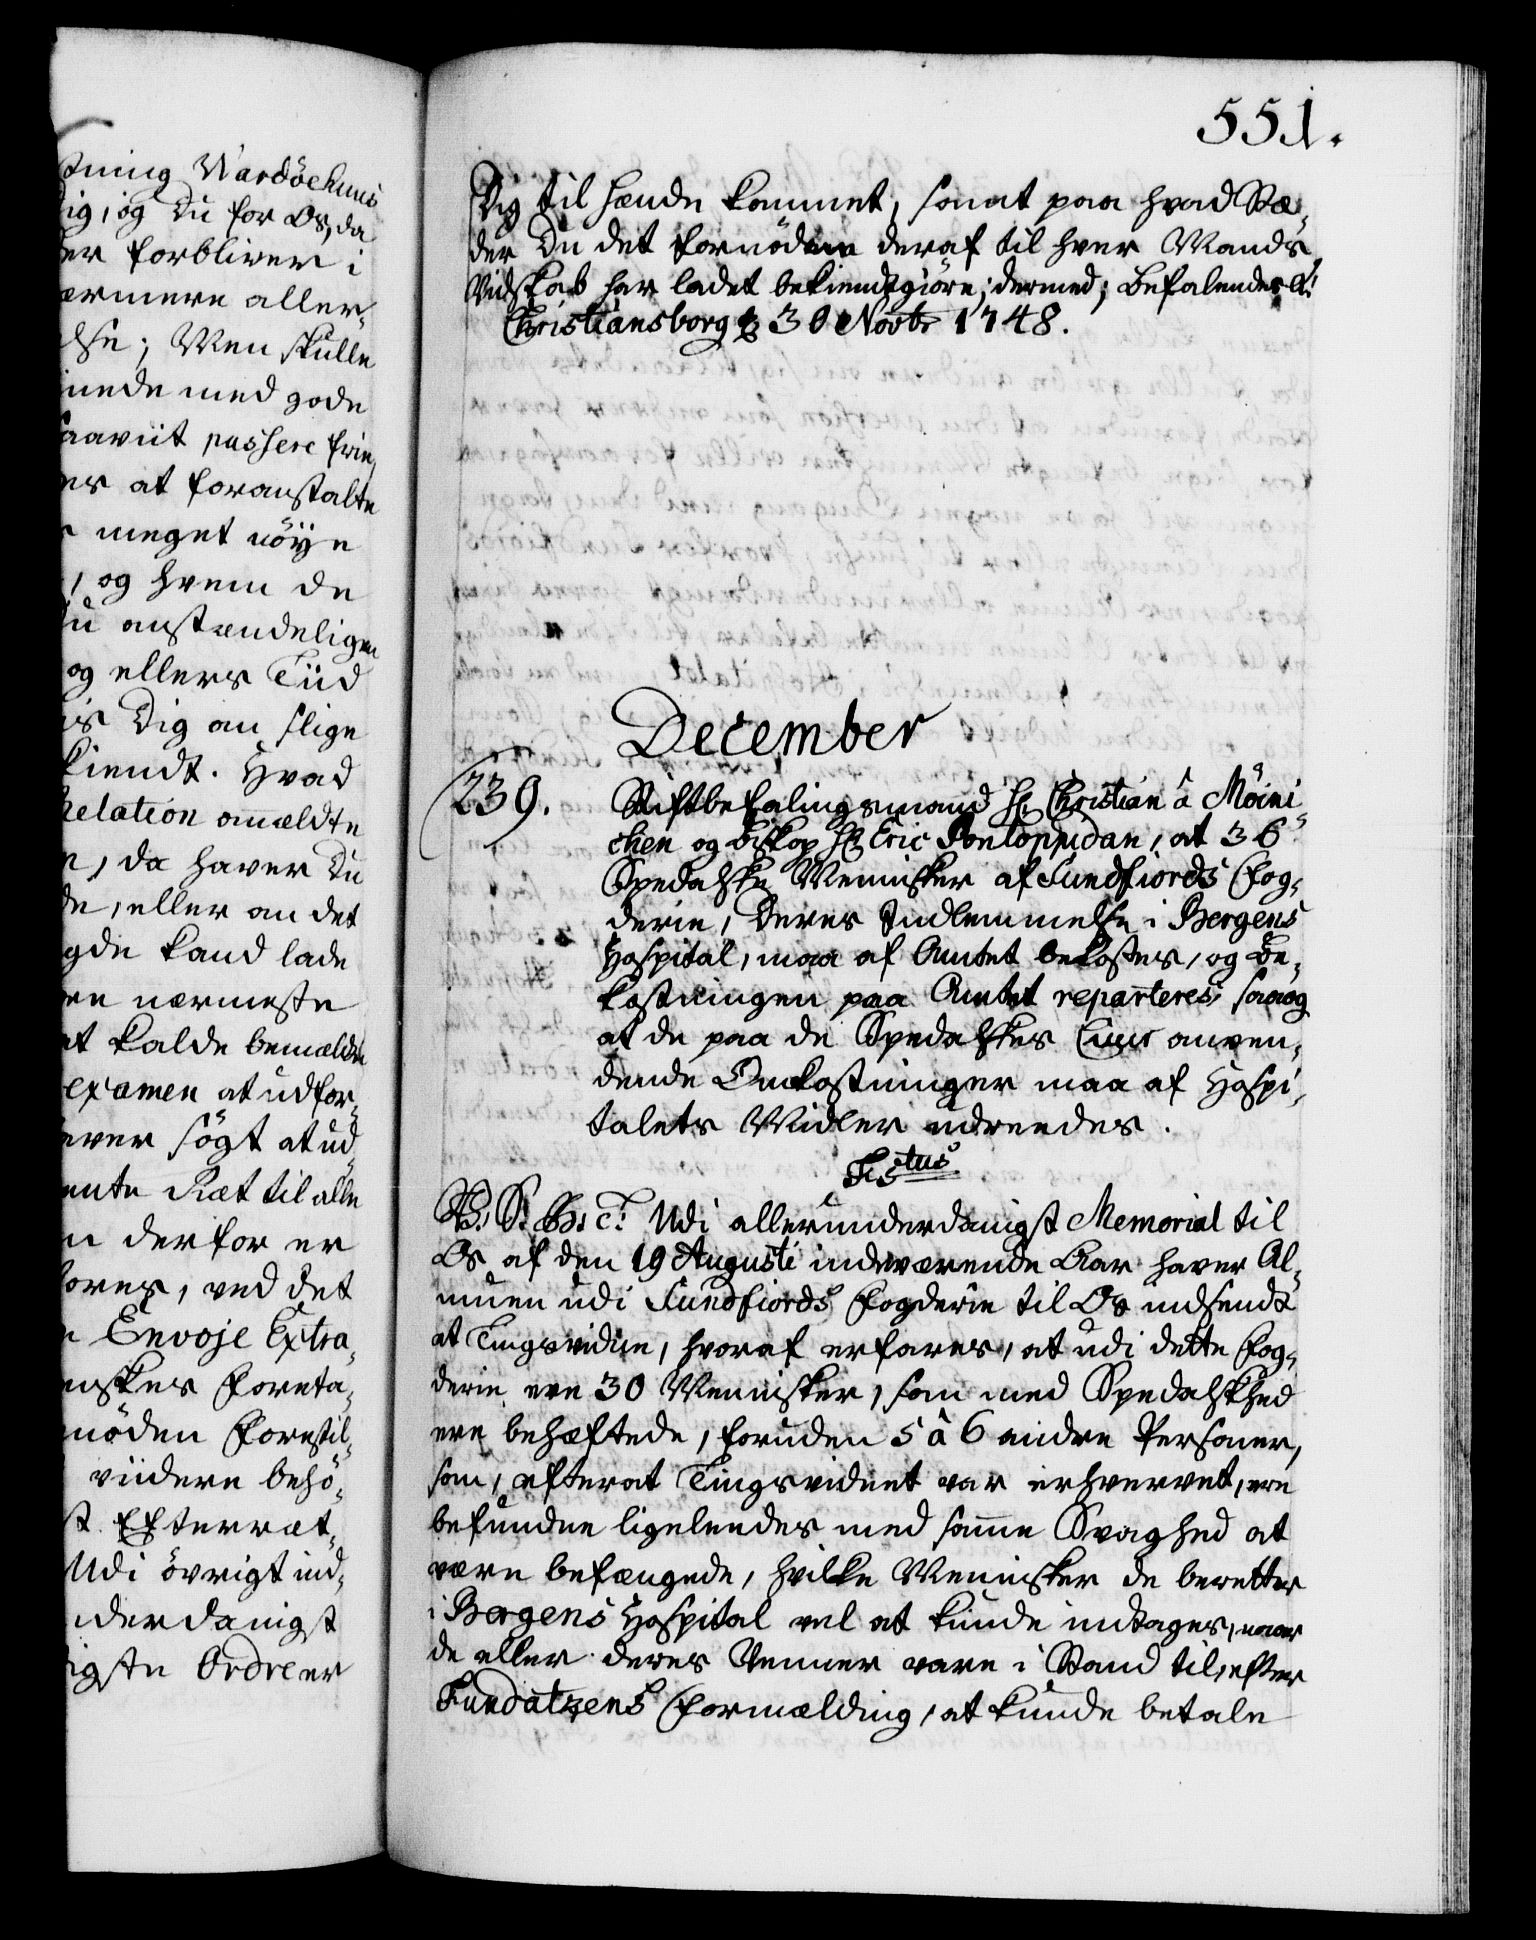 tning Wardöehuus
ig, og Du for Os, da
er forbliver i
ærmere aller-
lse; Men skulle
inede med gode
saaviit passere frie,
es at foranstalte
meget nöÿe
, og hvem de
Du anstændeligen
og ellers Tiid
is Dig om slige
kiendt. Hvad
Relation omældte
n, da haver Du
de, eller om det
gde kand lade
en nærmeste
at kalde bemældte
examen at udfor-
aver sögt at ud-
ente Ræt til alle
n derfor er
fores, ved det
n Envoje Extra-
enskes Foreta-
nöden Forestil-
viidere behö-
st Efterræt-
Udi övrigt ind-
nderdanigst
igste Ordre er
551.
Dig til Hænde kommet, samt paa hvad Stæ-
der Du det fornödne deraf til hver Mands
Vidskab har ladet bekiendtgiöre; dermed; Befalendes &:
Christiansborg d 30 Novbr 1748.
December
239. Stiftbefalingsmand Hr Christian â Möini
chen og Biskop Hr Eric Pontoppidan, at 36
Spedalske Mennisker af Sundfiords Fog-
derie, deres Indlemmelse i Bergens
Hospital, maa af Amtet bekostes, og Be-
kostningen paa Amtet reparteres, saa og
at de paa de Spedalskes Cuur anven-
dende Omkostninger maa af Hospi-
talets Midler udreedes.
F 5tus
V: S: G: T: Udi allerunderdanigst Memorial til
Os af den 19 Augusti indeværende Aar haver Al-
muen udi Sundfiords Fogderie til Os indsendt
at Tingsvidne, hvoraf erfares, at udi dette Fog-
derie ere 30 Mennisker, som med Spedalskhed
ere behæftede, foruden 5 â 6 andre Personer,
som, efterat Tingsvidnet var erhvervet, ere
befundne ligeledes med samme Svaghed at
være befængede, hvilke Mennisker de beretter
i Bergens Hospital vel at kunde indtages, naar
de eller deres Venner vare i Stand til, efter
Fundatzens Formælding, at kunde betale